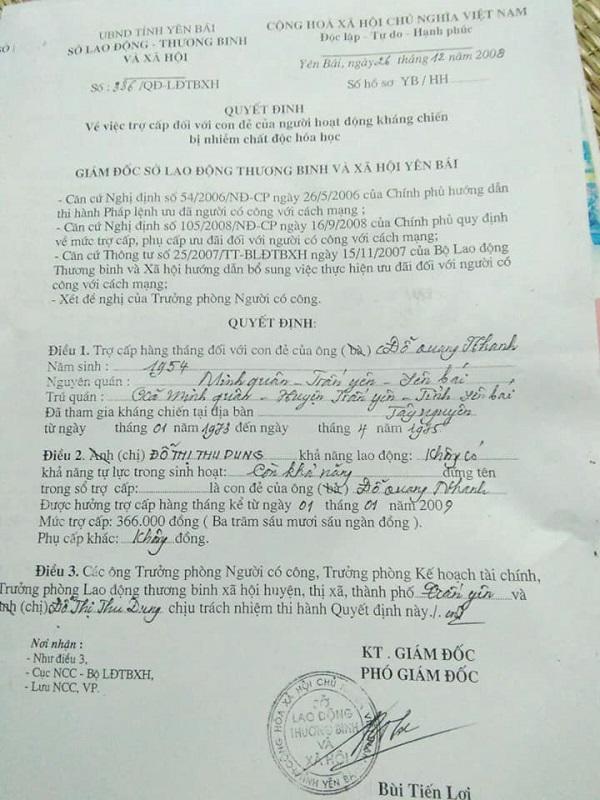 UBND TỈNH YÊN BÁI
SỞ LAO ĐỘNG - THƯƠNG BINH
VÀ XÃ HỘI
CỘNG HOÀ XÃ HỘI CHỦ NGHĨA VIỆT NAM
Độc lập - Tự do - Hạnh phúc
Yên Bái, ngày 26 tháng 12 năm 2008
Số : 356/QĐ-LĐTBXH
Số hồ sơ YB / HH
QUYẾT ĐỊNH
Về việc trợ cấp đối với con đẻ của người hoạt động kháng chiến
bị nhiễm chất độc hóa học
GIÁM ĐỐC SỞ LAO ĐỘNG THƯƠNG BINH VÀ XÃ HỘI YÊN BÁI
- Căn cứ Nghị định số 54/2006/NĐ-CP ngày 26/5/2006 của Chính phủ hướng dẫn
thi hành Pháp lệnh ưu đãi người có công với cách mạng ;
- Căn cứ Nghị định số 105/2008/NĐ-CP ngày 16/9/2008 của Chính phủ quy định
về mức trợ cấp, phụ cấp ưu đãi đối với người có công với cách mạng;
- Căn cứ Thông tư số 25/2007/TT-BLĐTBXH ngày 15/11/2007 của Bộ Lao động
Thương binh và Xã hội hướng dẫn bổ sung việc thực hiện ưu đãi đối với người có
công với cách mạng;
- Xét đề nghị của Trưởng phòng Người có công.
QUYẾT ĐỊNH:
Điều 1. Trợ cấp hàng tháng đối với con đẻ của ông (bà) Đỗ Quang Thanh
Năm sinh : 1954
Nguyên quán : Minh quân - Trấn yên - Yên bái
Trú quán : Xã Minh quân - Huyện Trấn yên - Tỉnh Yên bái
Đã tham gia kháng chiến tại địa bàn Tây nguyên
từ ngày tháng 01 năm 1973 đến ngày tháng 4 năm 1975
Điều 2. Anh (chị) ĐỖ THỊ THU DUNG khả năng lao động: Không có
khả năng tự lực trong sinh hoạt: Còn khả năng đứng tên
trong sổ trợ cấp: là con đẻ của ông (bà) Đỗ Quang Thanh
Được hưởng trợ cấp hàng tháng kể từ ngày 01 tháng 01 năm 2009
Mức trợ cấp: 366.000 đồng ( Ba trăm sáu mươi sáu ngàn đồng ).
Phụ cấp khác: Không đồng.
Điều 3. Các ông Trưởng phòng Người có công, Trưởng phòng Kế hoạch tài chính,
Trưởng phòng Lao động thương binh xã hội huyện, thị xã, thành phố Trấn yên và
Anh (chị) Đỗ Thị Thu Dung chịu trách nhiệm thi hành Quyết định này./.
Nơi nhận :
- Như điều 3,
- Cục NCC - Bộ LĐTBXH,
- Lưu NCC, VP.
KT . GIÁM ĐỐC
PHÓ GIÁM ĐỐC
SỞ
LAO ĐỘNG
THƯƠNG BINH
VÀ
XÃ HỘI
Bùi Tiến Lợi